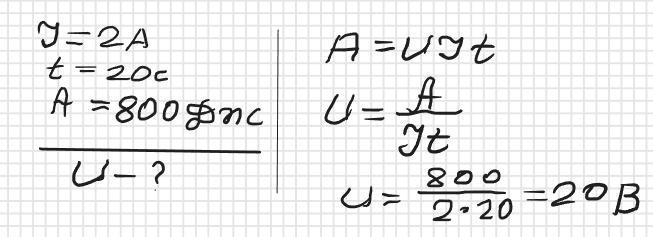 I = 2A
t = 20c
A = 800 джс
U - ?
A = UIt
U = A / It
U = 800 / 2·20 = 20 В